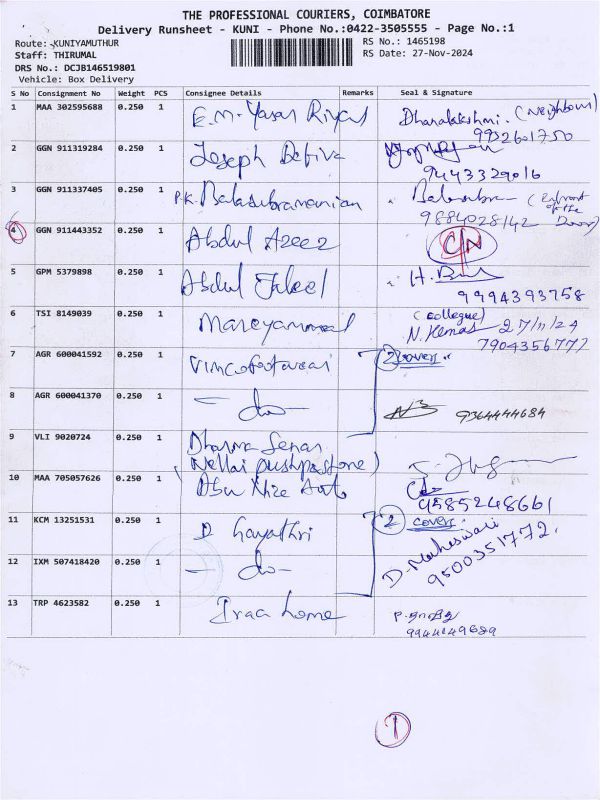 THE PROFESSIONAL COURIERS, COIMBATORE
Delivery Runsheet - KUNI - Phone No.:0422-3505555 - Page No.:1
Route: KUNIYAMUTHUR RS No.: 1465198
Staff: THIRUMAL RS Date: 27-Nov-2024
DRS No.: DCJB146519801
Vehicle: Box Delivery
S No Consignment No Weight PCS Consignee Details Remarks Seal & Signature
1 MAA 302595688 0.250 1 Dhanalakshmi. (Neighbour)
9932601750
2 GGN 911319284 0.250 1 Joseph
9443329016
3 GGN 911337405 0.250 1 P.K. Balasubramanian Balasubra (Infront of the Door)
9884028142
4 GGN 911443352 0.250 1 Abdul Azeez C/N
5 GPM 5379898 0.250 1 Abdul
9994393758
6 TSI 8149039 0.250 1 Mareyammal (collegue)
27/11/24
7904356777
7 AGR 600041592 0.250 1 2 covers
8 AGR 600041370 0.250 1 - do - 9364444684
9 VLI 9020724 0.250 1 Dharma Senan
(Nellai pushpastone)
10 MAA 705057626 0.250 1 Auto
9585248661
11 KCM 13251531 0.250 1 D Gayathri 2 covers
12 IXM 507418420 0.250 1 - do - D. Maheswari
9500351772.
13 TRP 4623582 0.250 1 Iraa home
1